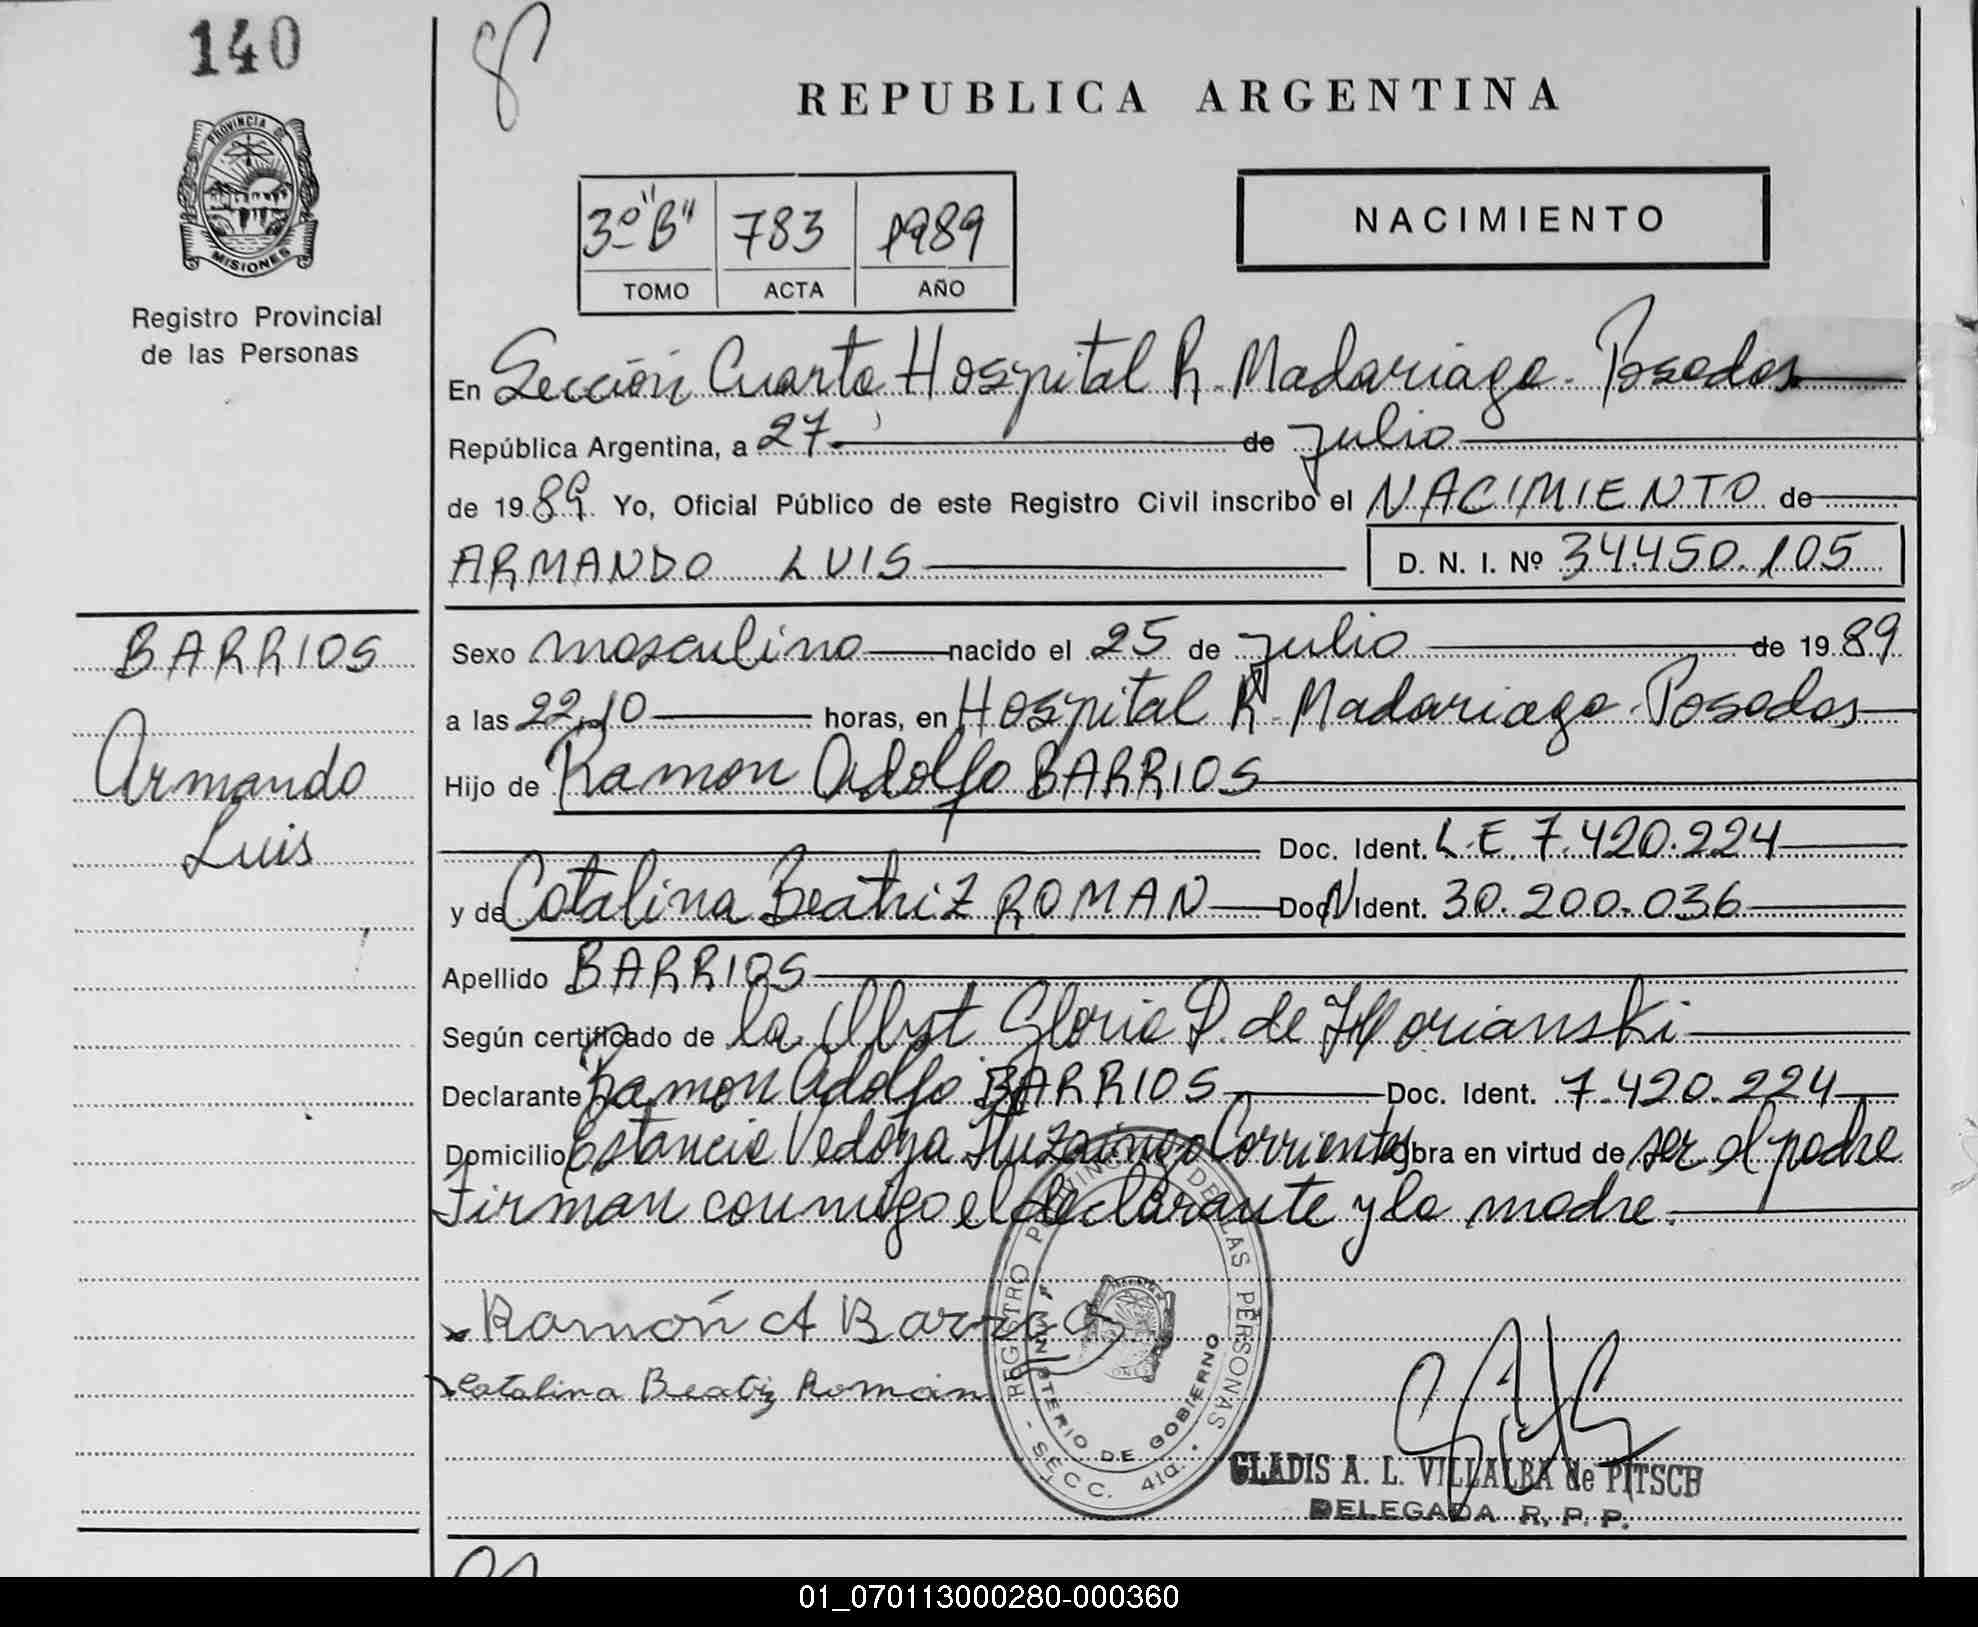 140
8
REPUBLICA ARGENTINA
PROVINCIA DE
MISIONES
Registro Provincial
de las Personas
3º "B" 783 1989
TOMO ACTA AÑO
NACIMIENTO
En Sección Cuarta Hospital R. Madariaga - Posadas
República Argentina, a 27 de julio
de 1989 Yo, Oficial Público de este Registro Civil inscribo el NACIMIENTO de
ARMANDO LUIS D. N. I. Nº 34.450.105
BARRIOS
Armando
Luis
Sexo masculino nacido el 25 de julio de 1989
a las 22,10 horas, en Hospital R. Madariaga - Posadas
Hijo de Ramon Adolfo BARRIOS
Doc. Ident. L.E. 7.420.224
y de Catalina Beatriz ROMAN Doc. Ident. 30.200.036
Apellido BARRIOS
Según certificado de la Obst Gloria P. de
Declarante Ramon Adolfo BARRIOS Doc. Ident. 7.420.224
Domicilio Estancia Vedoya Ituzaingo Corrientes obra en virtud de ser el padre
Firman conmigo el declarante y la madre.
Ramón A Barrios
Catalina Beatriz Román
REGISTRO PROVINCIAL DE LAS PERSONAS
MINISTERIO DE GOBIERNO
- SECC. 4ta. -
GLADIS A. L. VILLALBA de PITSCH
DELEGADA R. P. P.
01_070113000280-000360